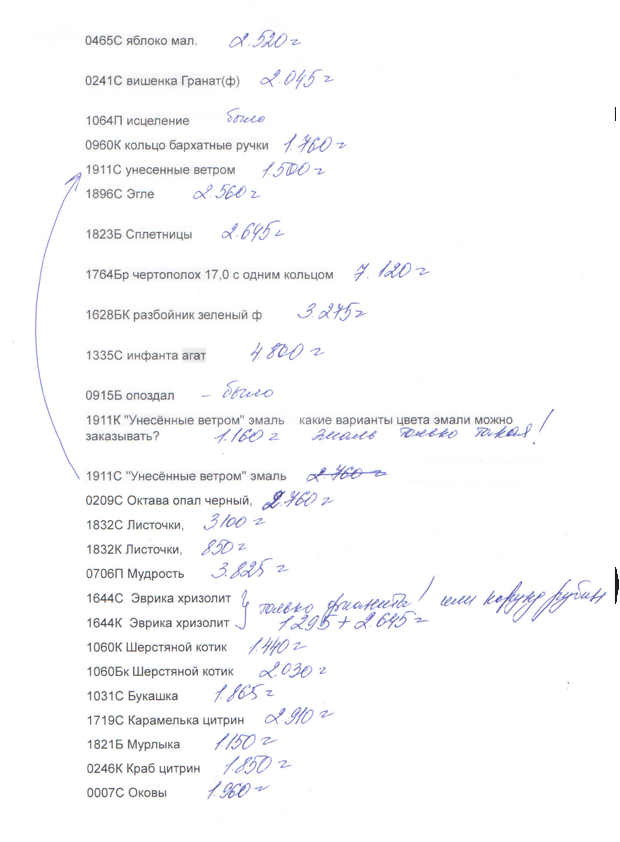 0465С яблоко мал. 2.520 г
0241С вишенка Гранат(ф) 2.045 г
1064П исцеление было
0960К кольцо бархатные ручки 1.760 г
1911С унесенные ветром 1.500 г
1896С Эгле 2.560 г
1823Б Сплетницы 2.645 г
1764Бр чертополох 17,0 с одним кольцом 7.120 г
1628БК разбойник зеленый ф 3.275 г
1335С инфанта агат 4.800 г
0915Б опоздал – было
1911К "Унесённые ветром" эмаль какие варианты цвета эмали можно
заказывать? 1.160 г эмаль только такая!
1911С "Унесённые ветром" эмаль 2.760
0209С Октава опал черный, 2.760 г
1832С Листочки, 3.100 г
1832К Листочки, 850 г
0706П Мудрость 3.825 г
1644С Эврика хризолит только фианиты! или корунд рубин
1644К Эврика хризолит 1.295 + 2.645 г
1060К Шерстяной котик 1.440 г
1060Бк Шерстяной котик 2.030 г
1031С Букашка 1.865 г
1719С Карамелька цитрин 2.910 г
1821Б Мурлыка 1.150 г
0246К Краб цитрин 1.850 г
0007С Оковы 1.960 г